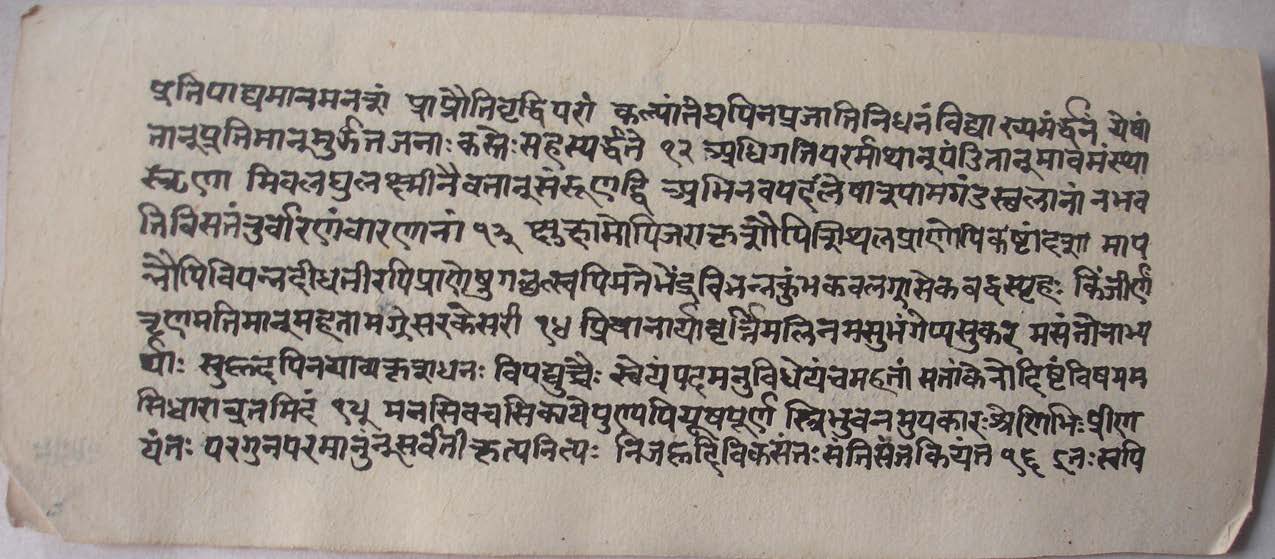 षुतिपाद्यमानमनत्रां प्राप्नौतिवृद्धिपरां कल्पांतेष्वपिनप्रजातिनिधनंविद्याख्यमंर्द्धनं येषां
तानूप्रतिमानमुर्झतजनाः कस्तैःसहस्पर्द्धते १२ अधिगतिपरमाथानूपंडितानूमावमंस्था
स्तृणा मिवलघुलक्ष्मीनैवतानूसंरूणद्धि अभिनवपदलेषात्रूपामगंडस्थलानां नभव
तिविसतंनुर्वारणंवारणनां १३ क्षुत्क्षामोपिजराकृशौपिशिथिलप्राणोपिकष्टांदशा माप
न्नौपिविपन्नदीधतीरपिप्राणेषुगछत्स्वपिमंतेभेंद्रविभन्नकुंभकवलग्रासेकबद्धस्पृहः किंजीर्ण
तृणमतिमानूमहतामग्रेसरकेसरी १४ प्रियानार्यावृर्त्तिमलिनमसुभंगेप्यसुकर मसंतोनाभ्य
र्थाः सुह्रदपिनयाच्यकृशधनः विपद्युच्चैः स्थेयंपदमनुविधेयंचमहतां मतांकेनोद्दिष्टंविषमम
सिधाराव्रतमिदं १५ मनसिवचसिकायेपुण्यपियूषपूर्ण स्त्रिभुवनमुपकारःश्रेणिभिःप्रीण
यंतः परगुनपरमानुनूसर्वतीकृत्यनित्यः निजह्रदिविकसंतःसंतिसंतकियंत १६ इतःस्वपि